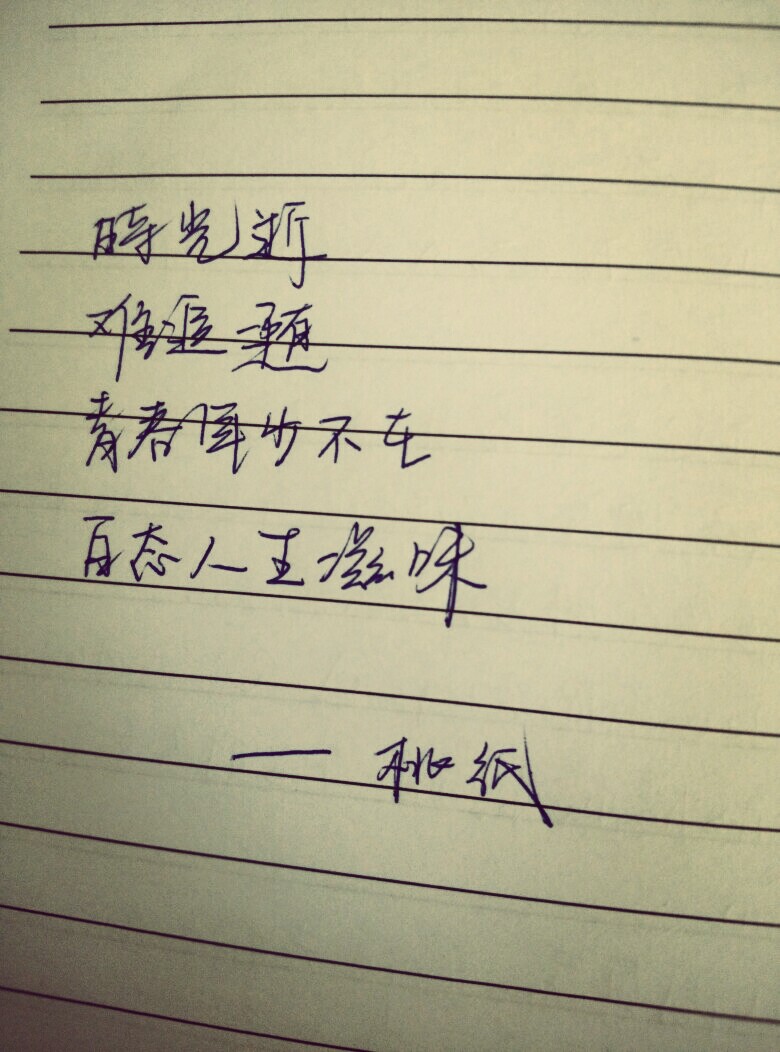 時光逝
难追憩
青春年少不在
百态人生滋味
—— 秋纸